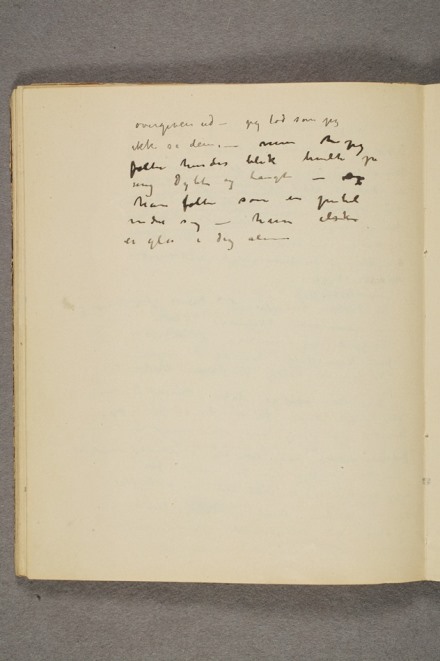 overgiven ud — jeg lod som jeg
ikke så dem. — men jeg
følte hendes blik hvile på
mig dybt og langt —
han følte som en jubel
inde sig — ham elsker
er glas i dag